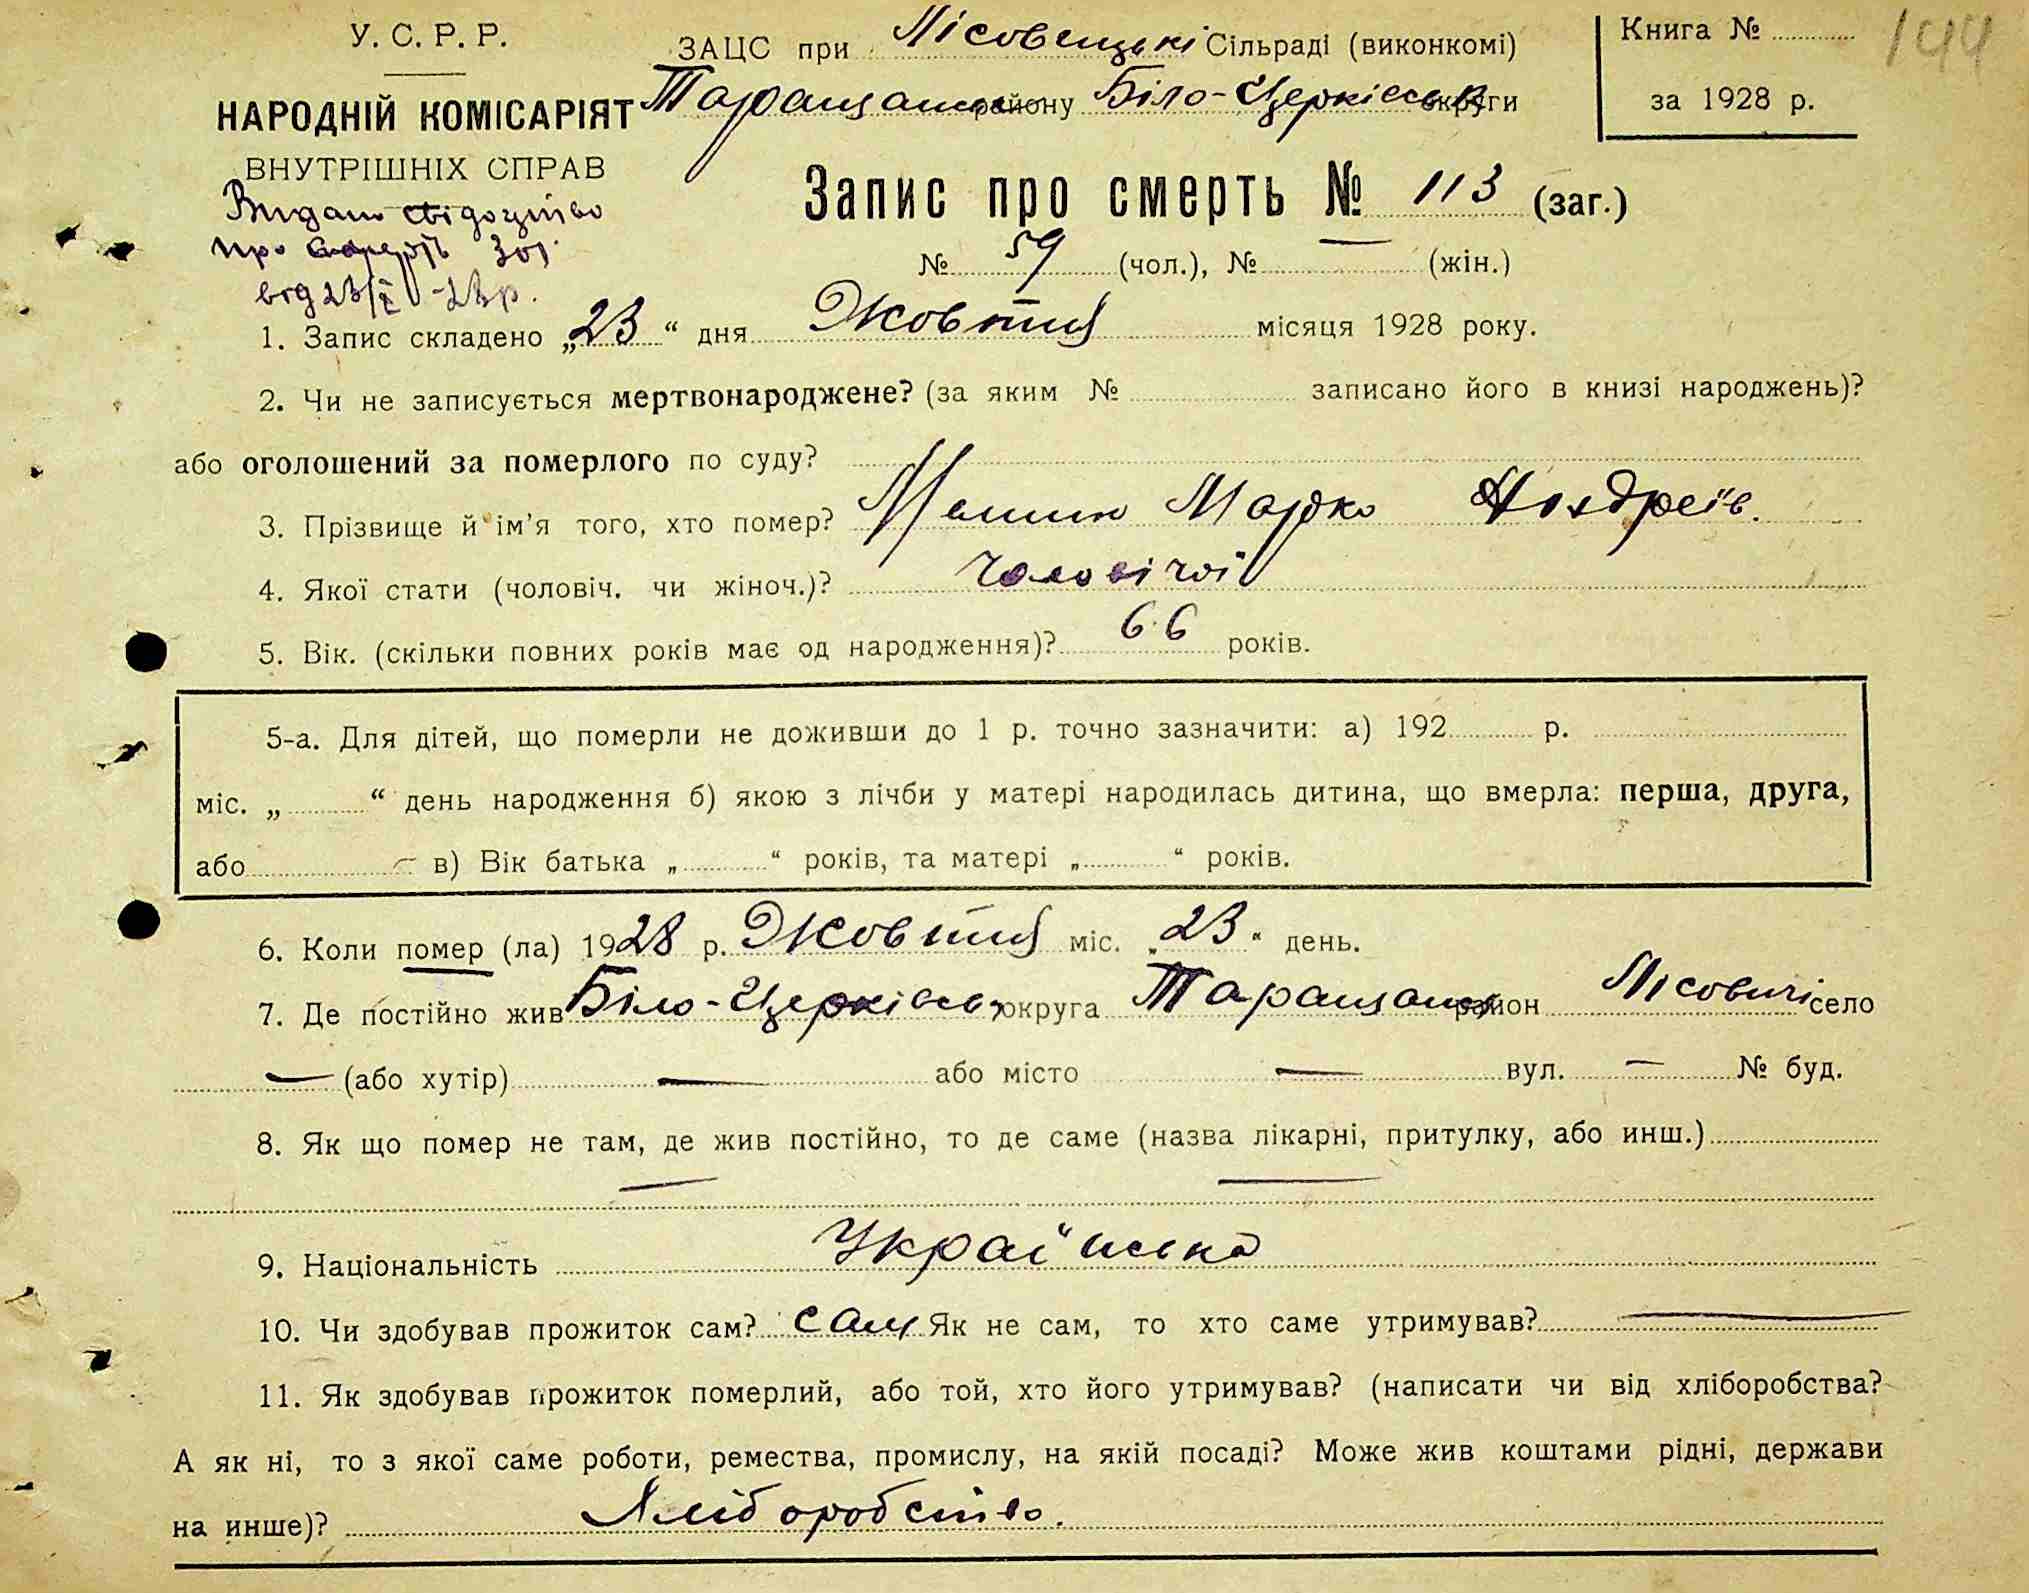 У. С. Р. Р.
НАРОДНІЙ КОМІСАРІЯТ
ВНУТРІШНІХ СПРАВ
Видано свідоцтво
про смерть 301
від 23/X -28 р.
ЗАЦС при Лісовецькі Сільраді (виконкомі)
Таращанськ району Біло-Церківськ округи
Книга №
за 1928 р.
144
Запис про смерть № 113 (заг.)
№ 59 (чол.), № — (жін.)
1. Запис складено „23“ дня Жовтня місяця 1928 року.
2. Чи не записується мертвонароджене? (за яким № записано його в книзі народжень)?
або оголошений за померлого по суду?
3. Прізвище й ім’я того, хто помер? Марко Андреїв.
4. Якої стати (чоловіч. чи жіноч.)? чоловічої
5. Вік. (скільки повних років має од народження)? 66 років.
5-а. Для дітей, що померли не доживши до 1 р. точно зазначити: а) 192 р.
міс. „ “ день народження б) якою з лічби у матері народилась дитина, що вмерла: перша, друга,
або в) Вік батька „ “ років, та матері „ “ років.
6. Коли помер (ла) 1928 р. Жовтня міс. „23“ день.
7. Де постійно жив Біло-Церківськ округа Таращанськ район Лісовичі село
— (або хутір) — або місто — вул. — № буд.
8. Як що помер не там, де жив постійно, то де саме (назва лікарні, притулку, або инш.)
— —
9. Національність Українська
10. Чи здобував прожиток сам? сам Як не сам, то хто саме утримував? —
11. Як здобував прожиток померлий, або той, хто його утримував? (написати чи від хліборобства?
А як ні, то з якої саме роботи, ремества, промислу, на якій посаді? Може жив коштами рідні, держави
на инше)? Хліборобство.